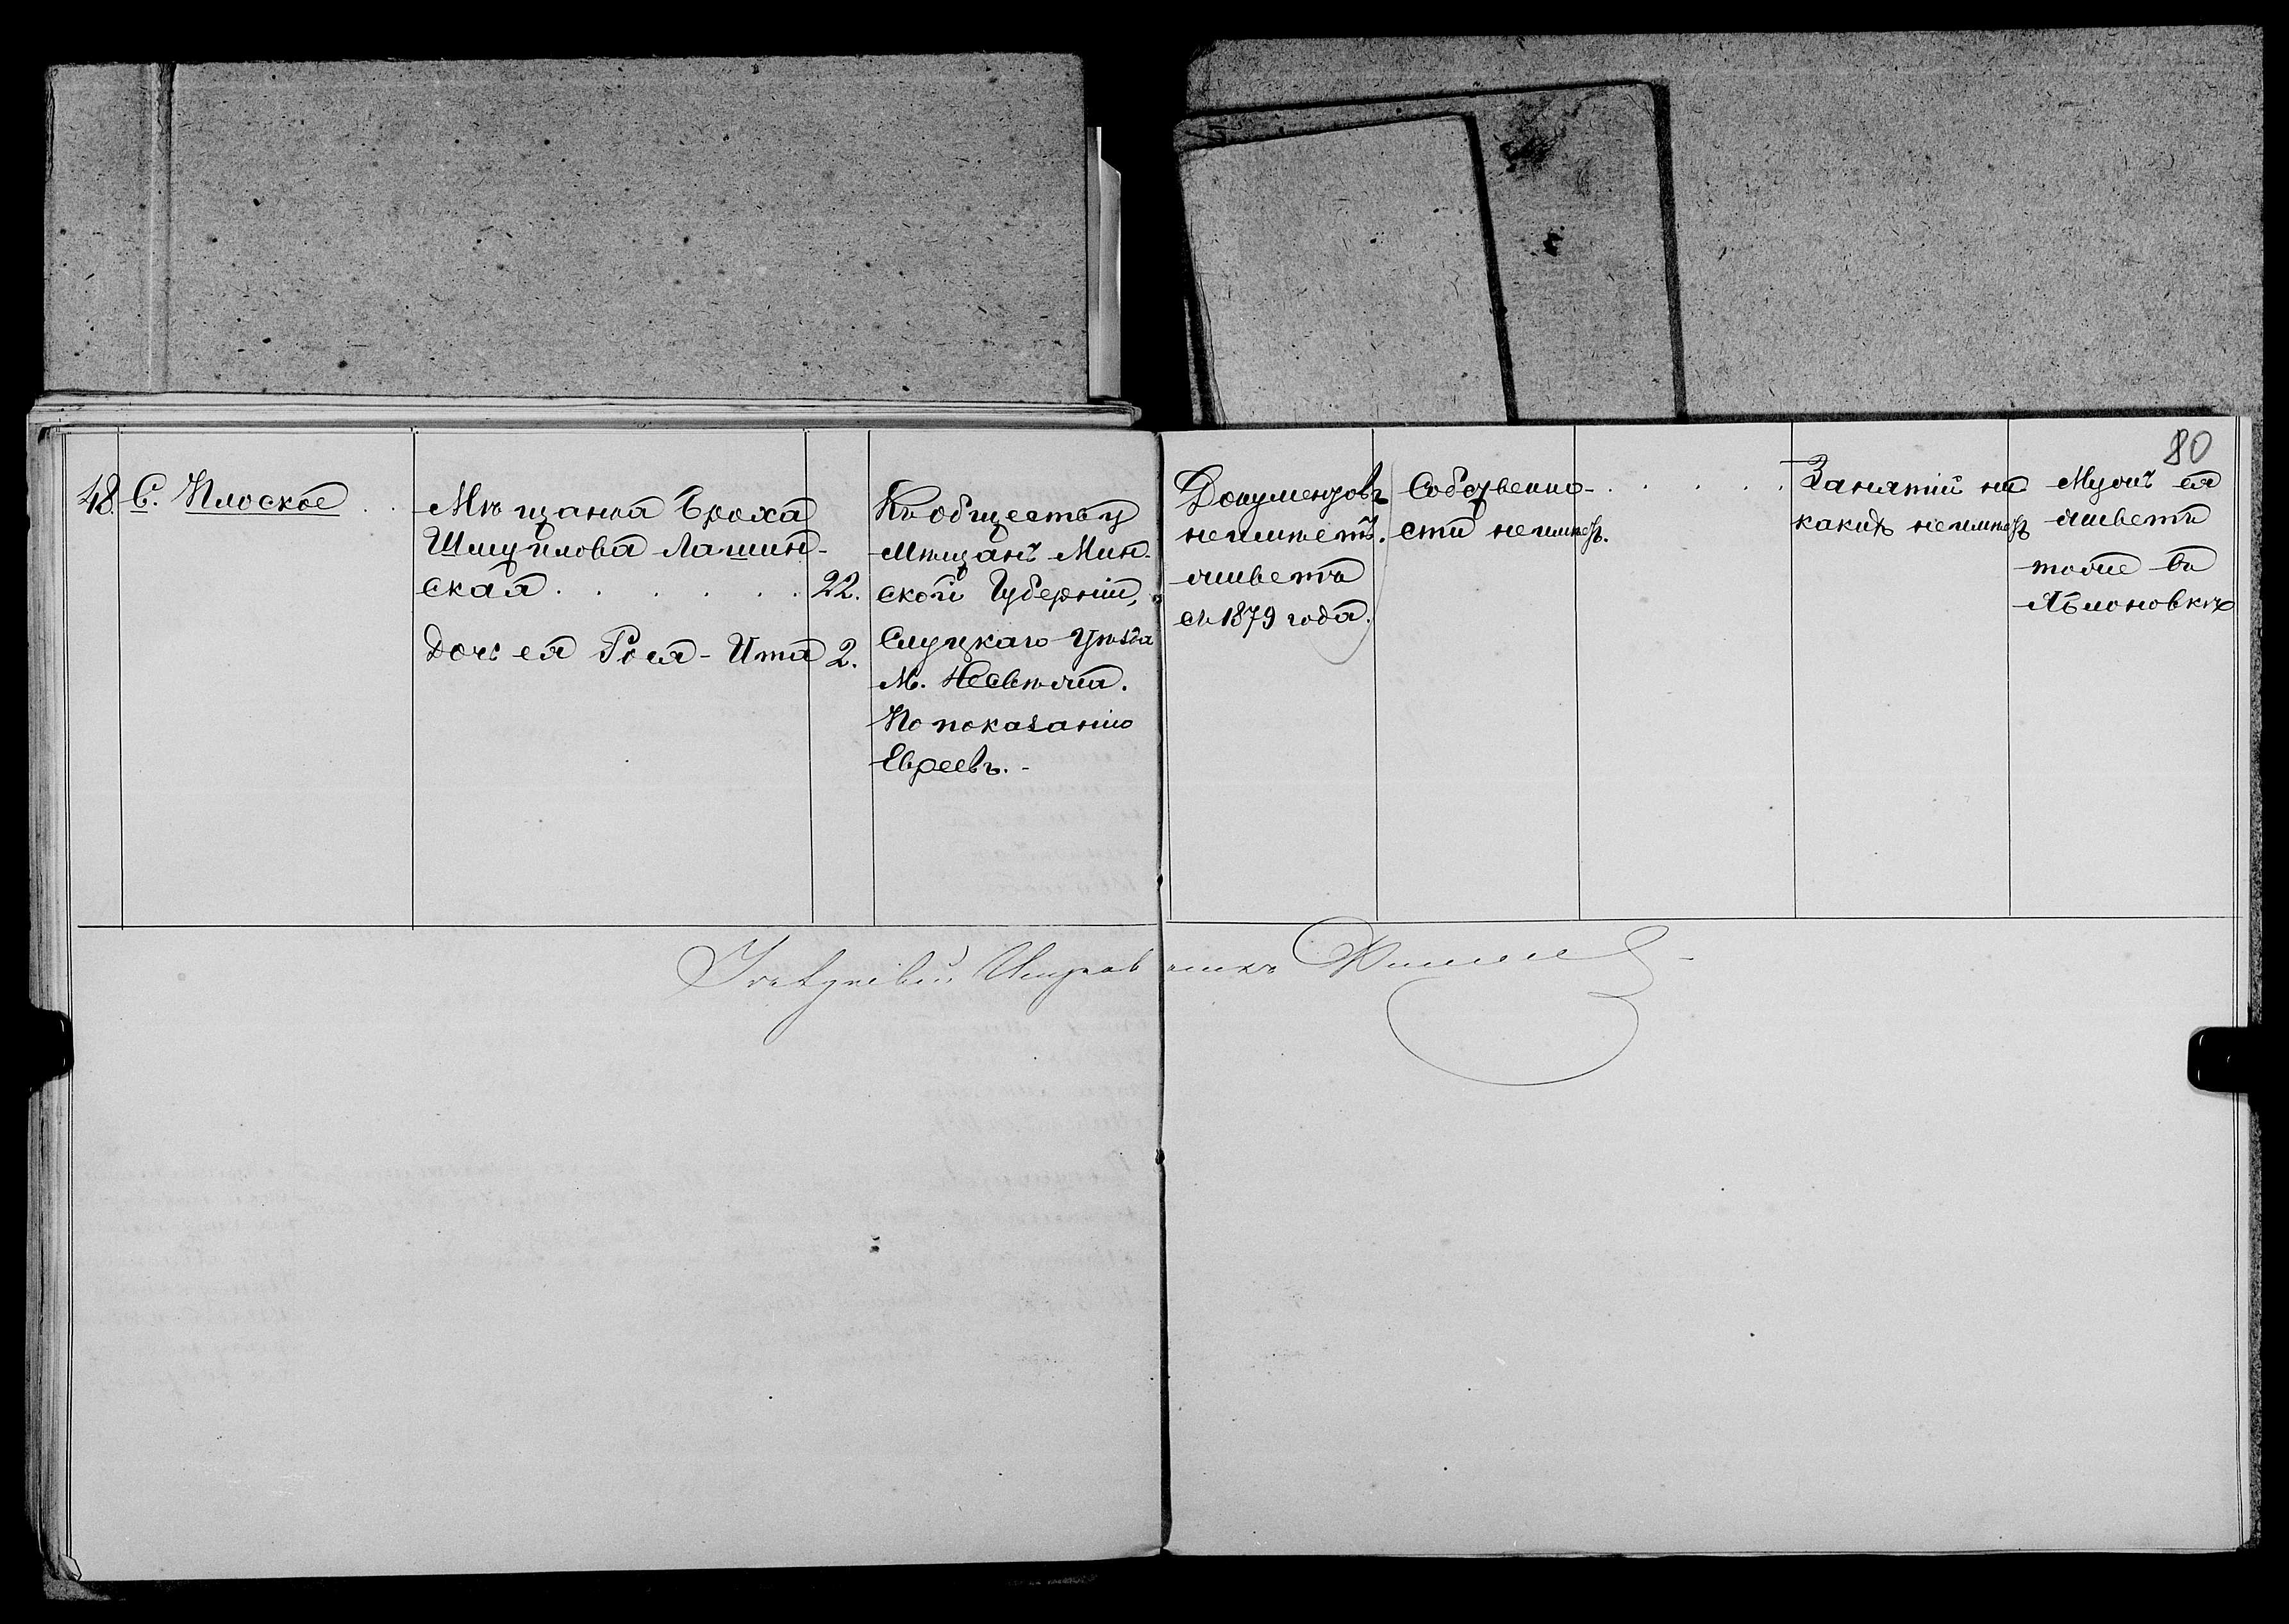 80
48. С. Плоское . .
Мѣщанка Броха
Шмуилова Лашин-
ская . . . . . . 22.
Дочь ея Роея - Ита 2.
Къ обществу
мѣщанъ Мин-
ской Губерніи,
Слуцкаго Уѣзда
М. Несвѣжа.
По показанію
Евреевъ. -
Документовъ
неимѣетъ.
живетъ
съ 1879 года.
Собственно-
сти неимѣетъ.
. . . . .
Занятій ни
какихъ неимѣетъ
Мужъ ея
живетъ
тоже въ
Яблоновкѣ
Исправникъ